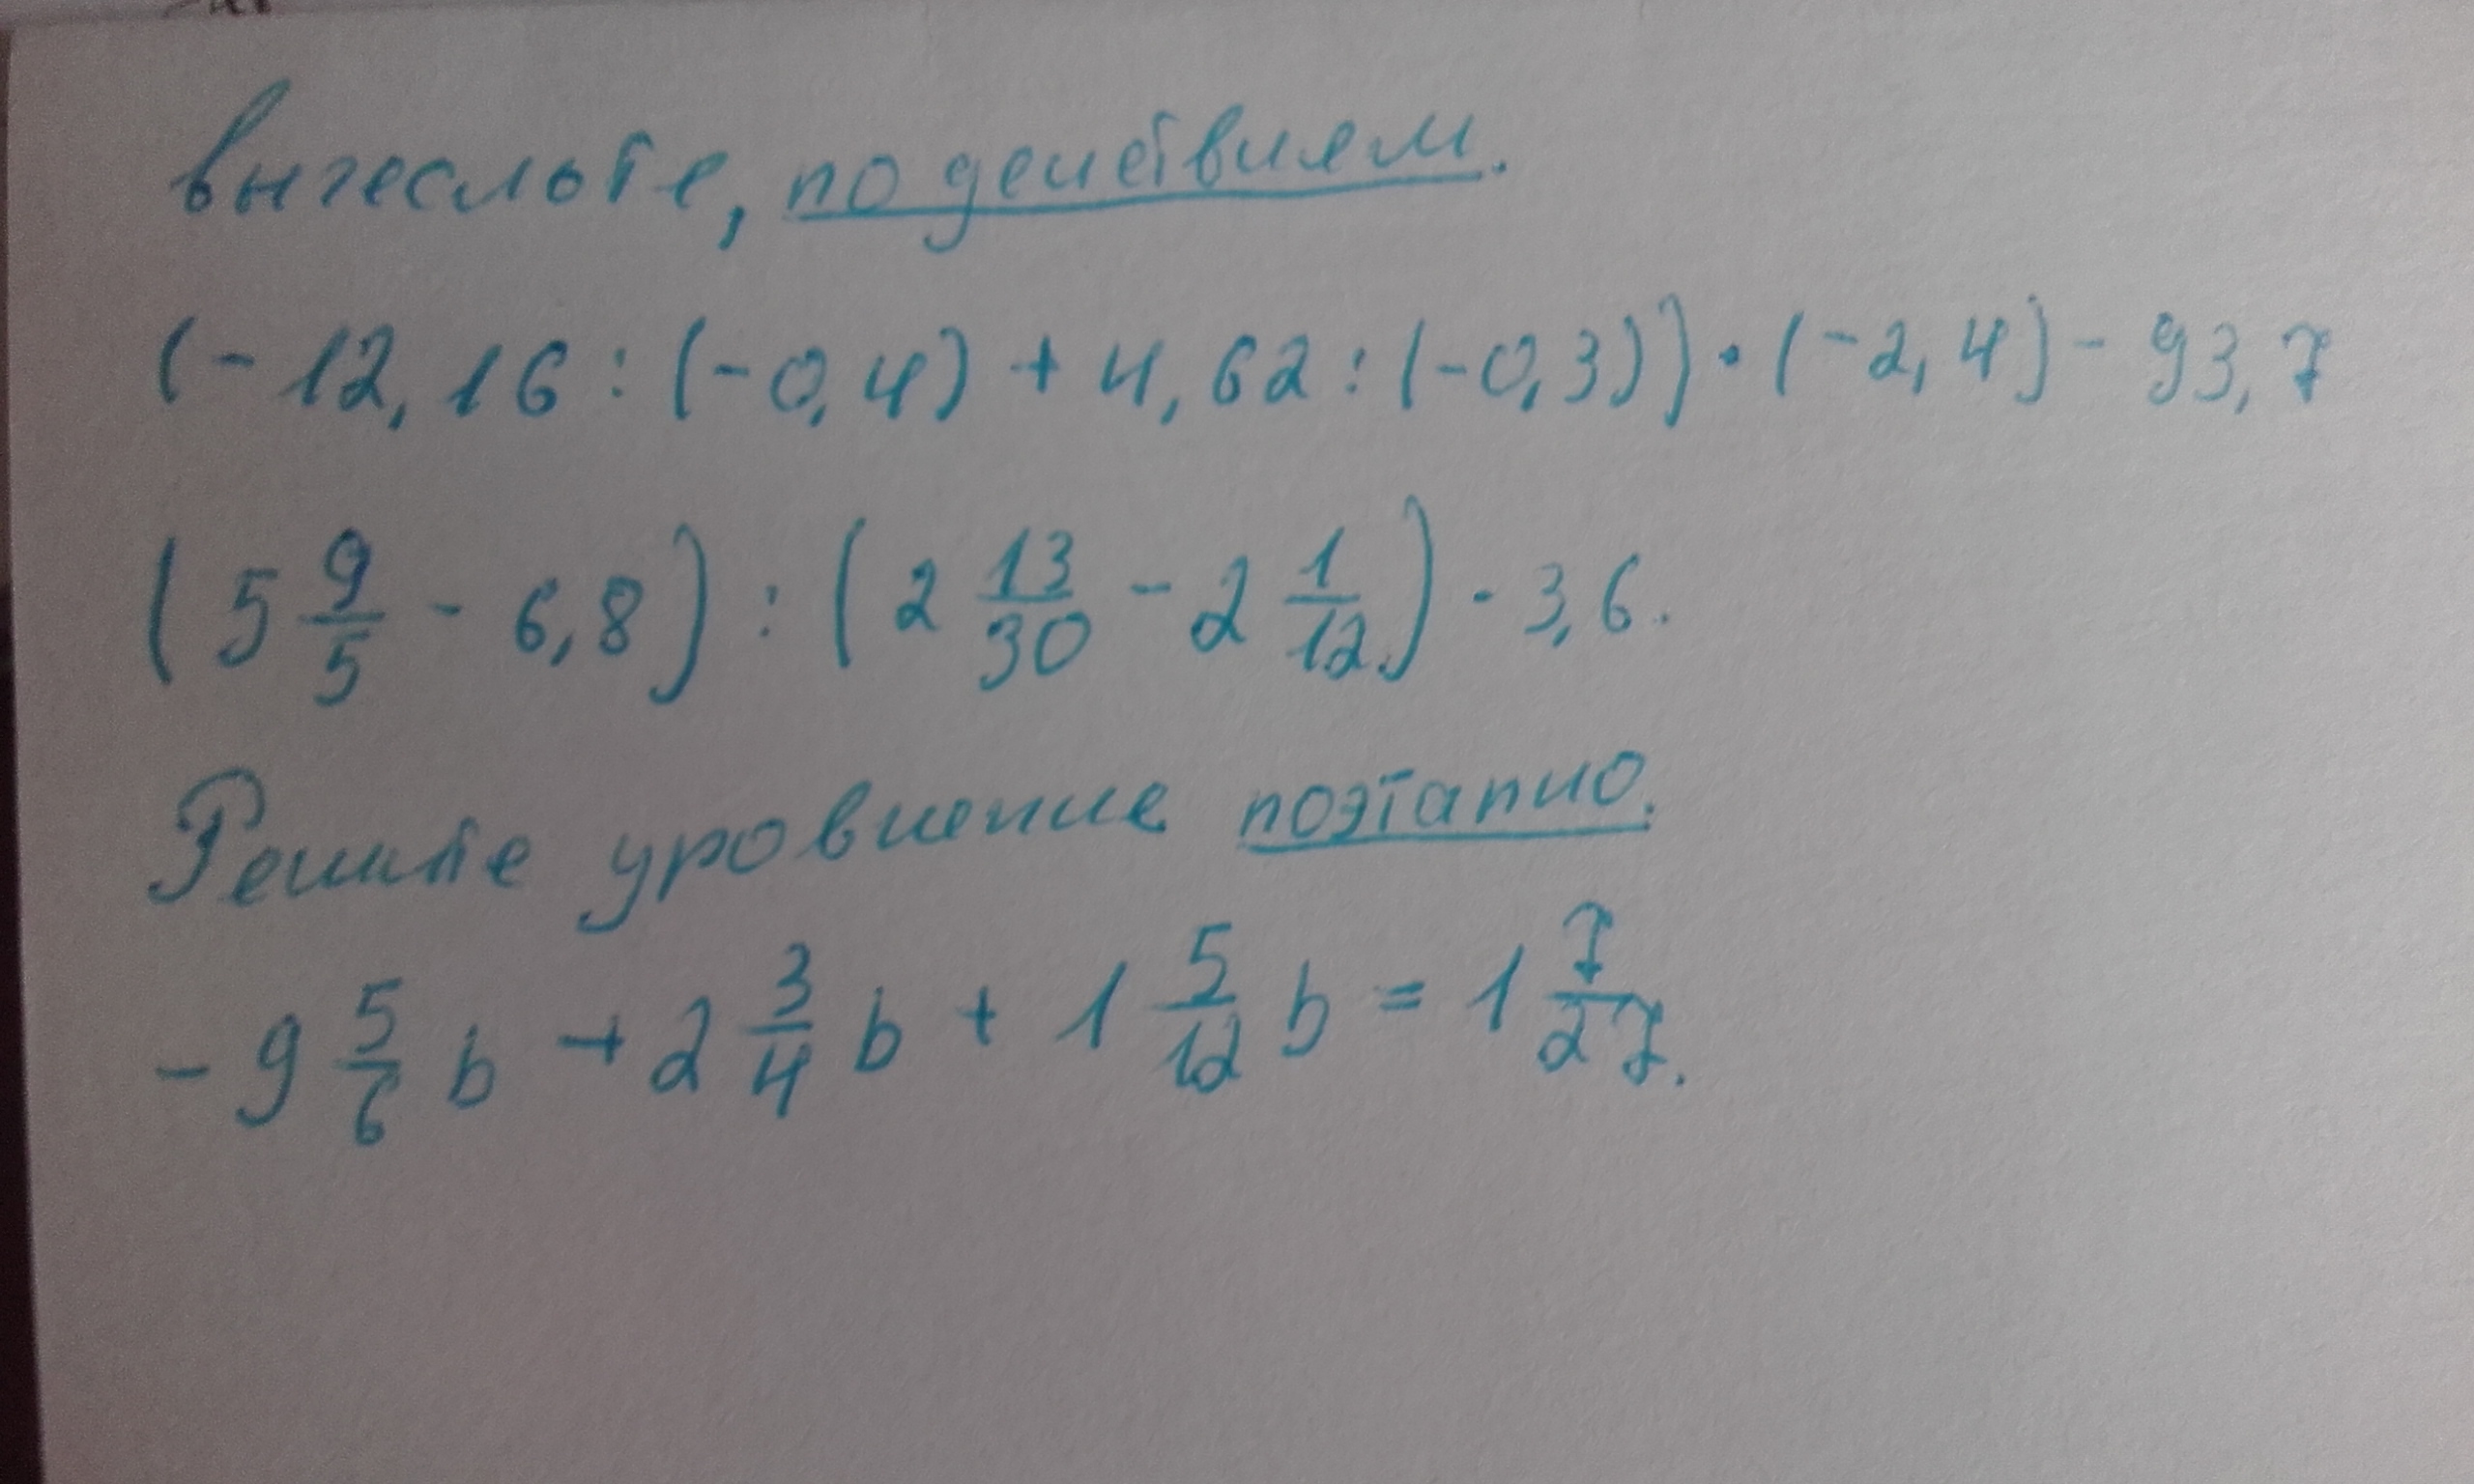 вычеслоте, по действиям.
(-12,16:(-0,4)+4,62:(-0,3))·(-2,4)-93,7
(5 9/5 - 6,8) : (2 13/30 - 2 1/12) - 3,6.
Решите уровнение поэтапно.
-9 5/6 b + 2 3/4 b + 1 5/12 b = 1 7/27.